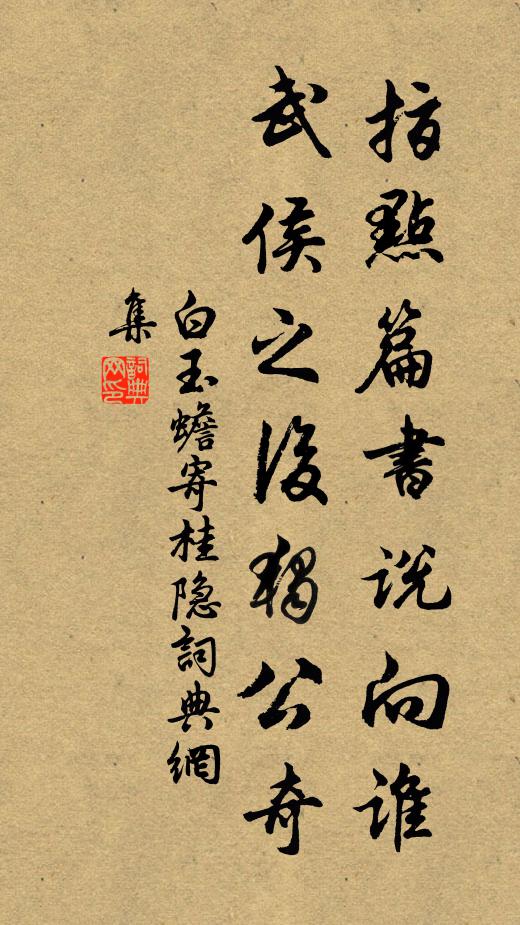 指點篇書說向誰
武侯之後獨公奇
白玉蟾寄桂隐詞典網
集
詞典网印